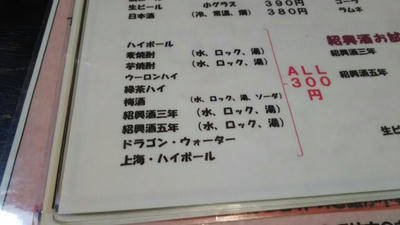 生ビール 小グラス 390円 コーラ
日本酒 (冷、常温、燗) 380円 ラムネ
ハイボール
麦焼酎 (水、ロック、湯)
芋焼酎 (水、ロック、湯)
ウーロンハイ
緑茶ハイ
梅酒 (水、ロック、湯、ソーダ)
紹興酒三年 (水、ロック、湯)
紹興酒五年 (水、ロック、湯)
ドラゴン・ウォーター
上海・ハイボール
ALL
300
円
紹興酒お試
紹興酒三年
紹興酒五年
生ビ